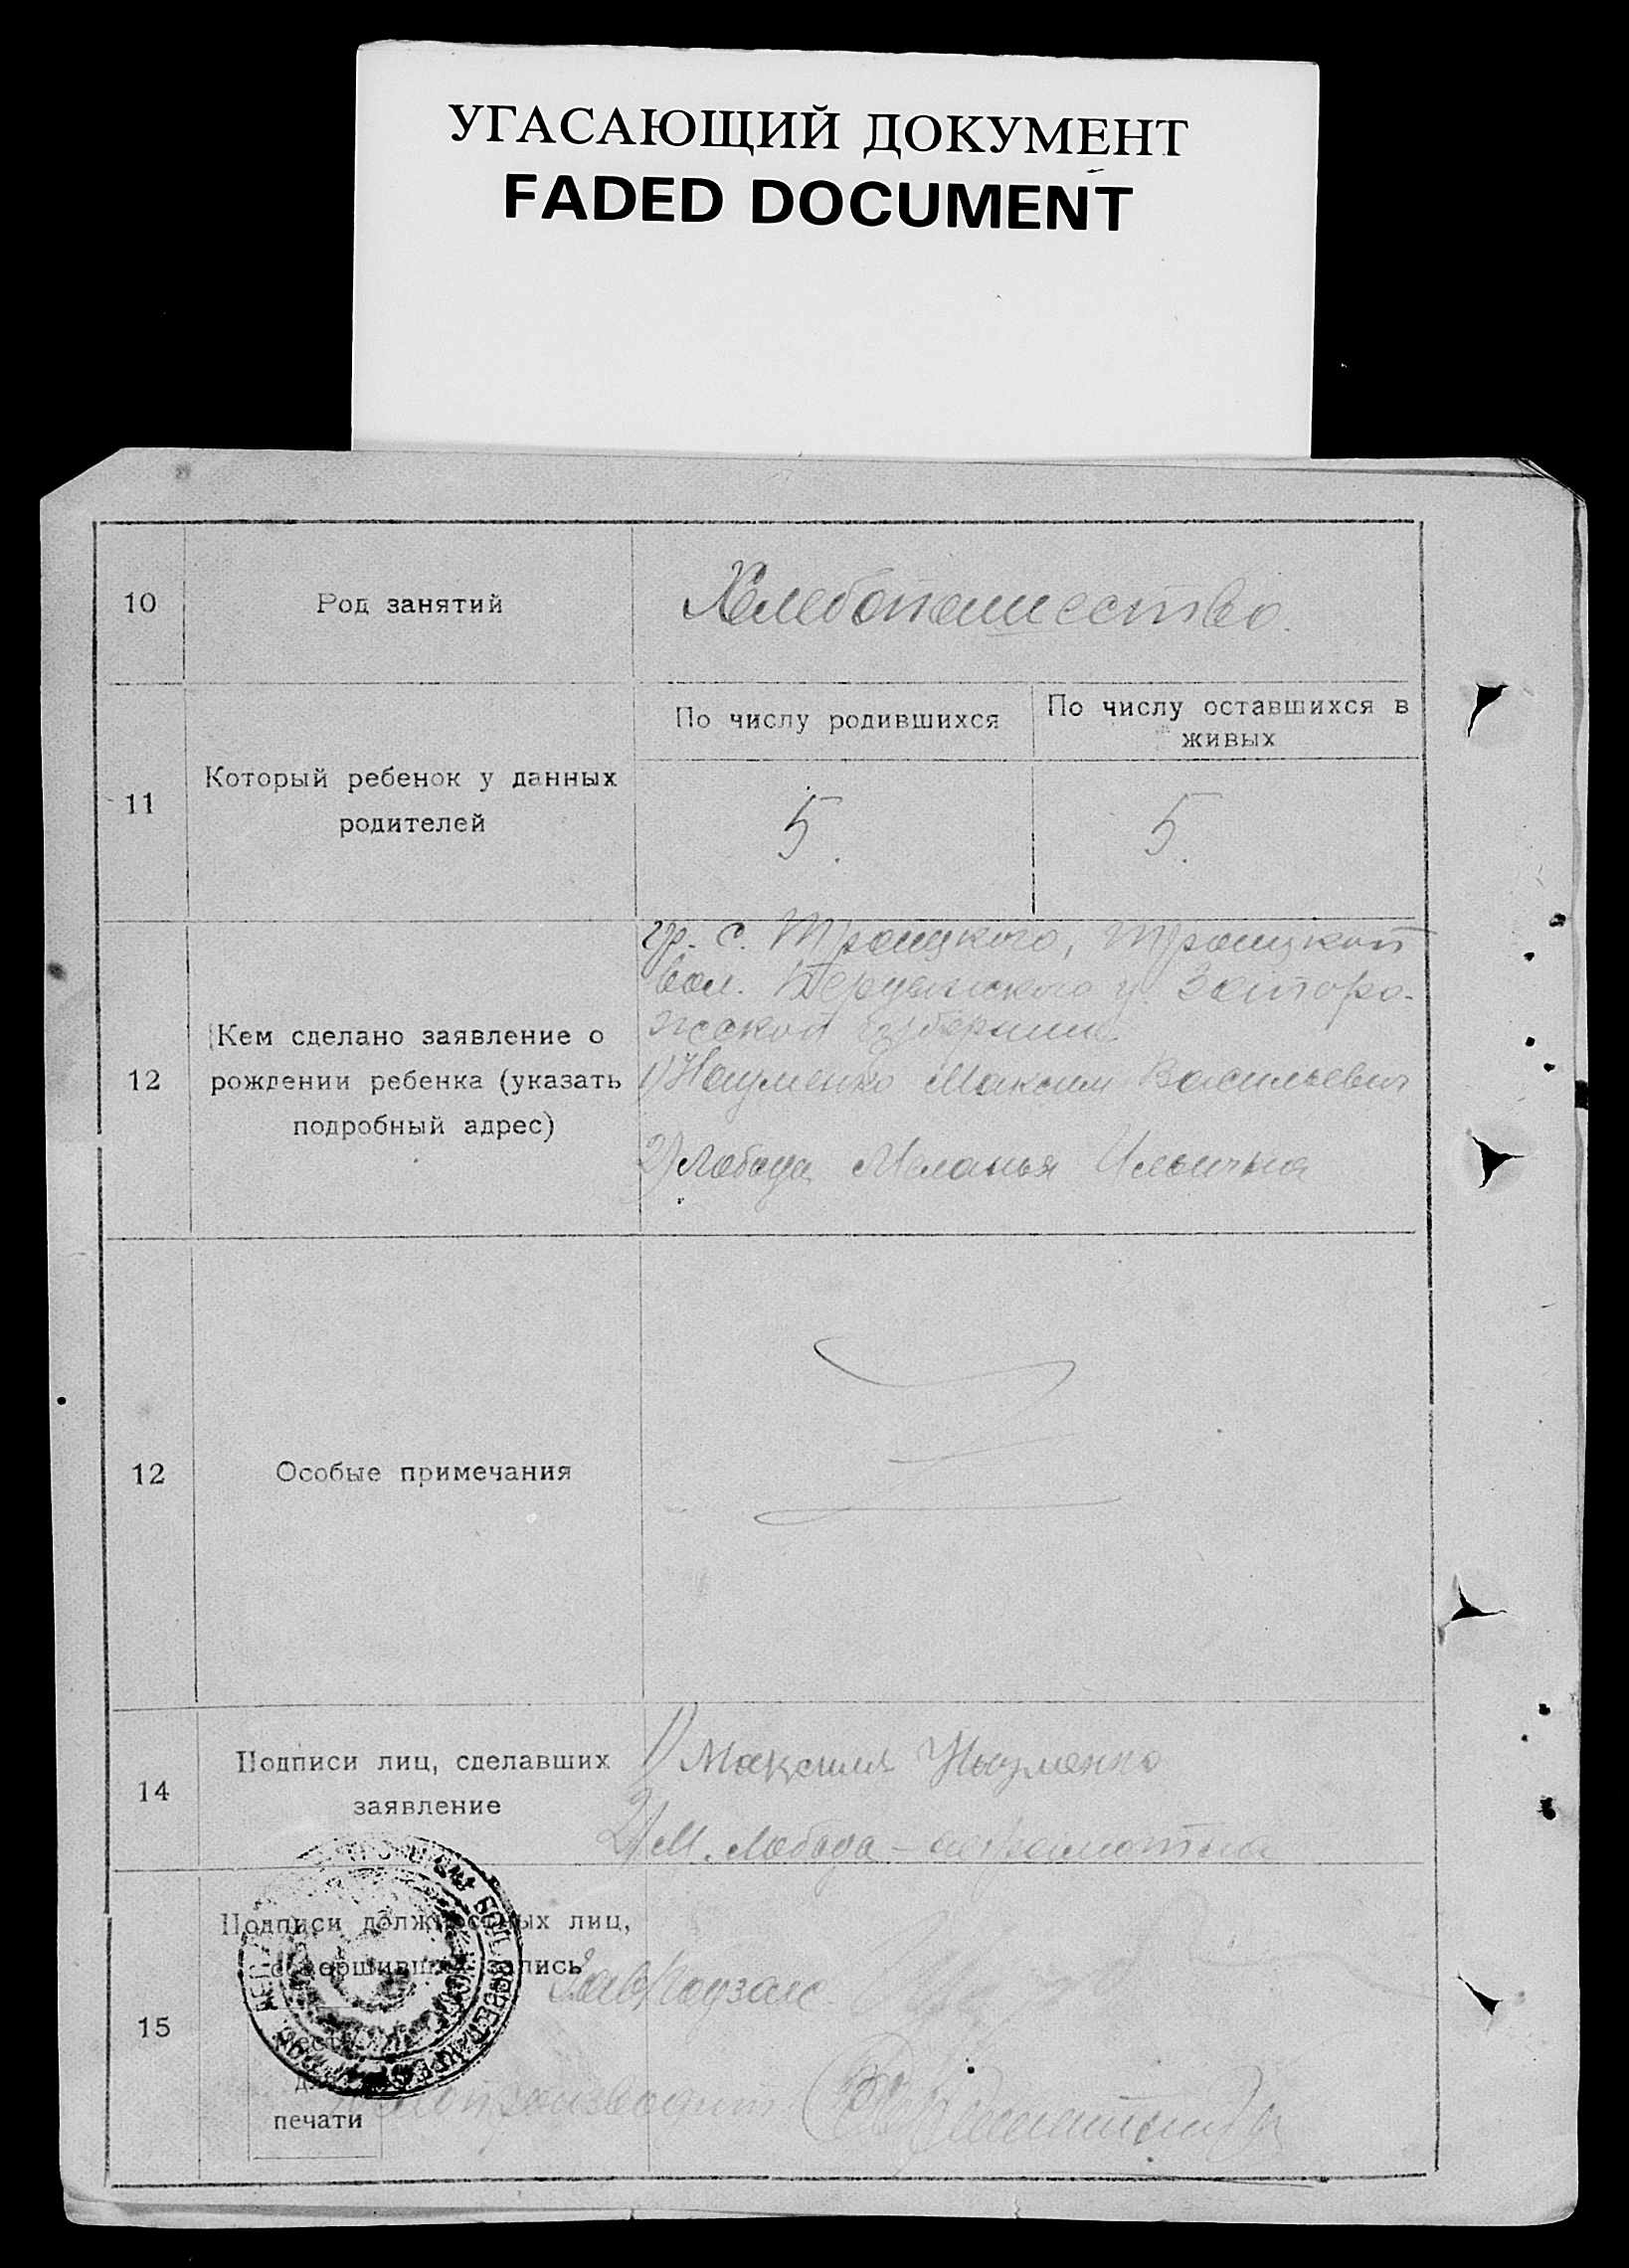 УГАСАЮЩИЙ ДОКУМЕНТ
FADED DOCUMENT
10
Род занятий
Хлебопашество.
11
Который ребенок у данных
родителей
По числу родившихся
По числу оставшихся в
живых
5.
5.
12
Кем сделано заявление о
рождении ребенка (указать
подробный адрес)
гр. с. Троицкого, Троицкой
вол. Бердянского у. Запоро-
жской губернии
1) Науменко Максим Васильевич
2) Лобода Меланья Ильична
12
Особые примечания
14
Подписи лиц, сделавших
заявление
1) Максим Науменко
2) М. Лобода - неграмотна
15
Подписи должностных лиц,
совершивших запись
Место
для
печати
ЗавПодзагс
Делопроизводит.